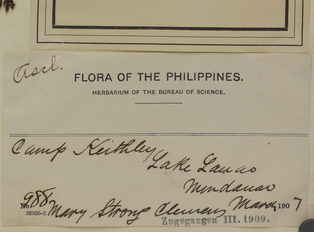 Ascl.
FLORA OF THE PHILIPPINES.
HERBARIUM OF THE BUREAU OF SCIENCE.
Camp Keithley
Lake Lanao
Mindanao
No. 988 Mary Strong Clemens March 1907
36936-2
Zugegangen III. 1909.